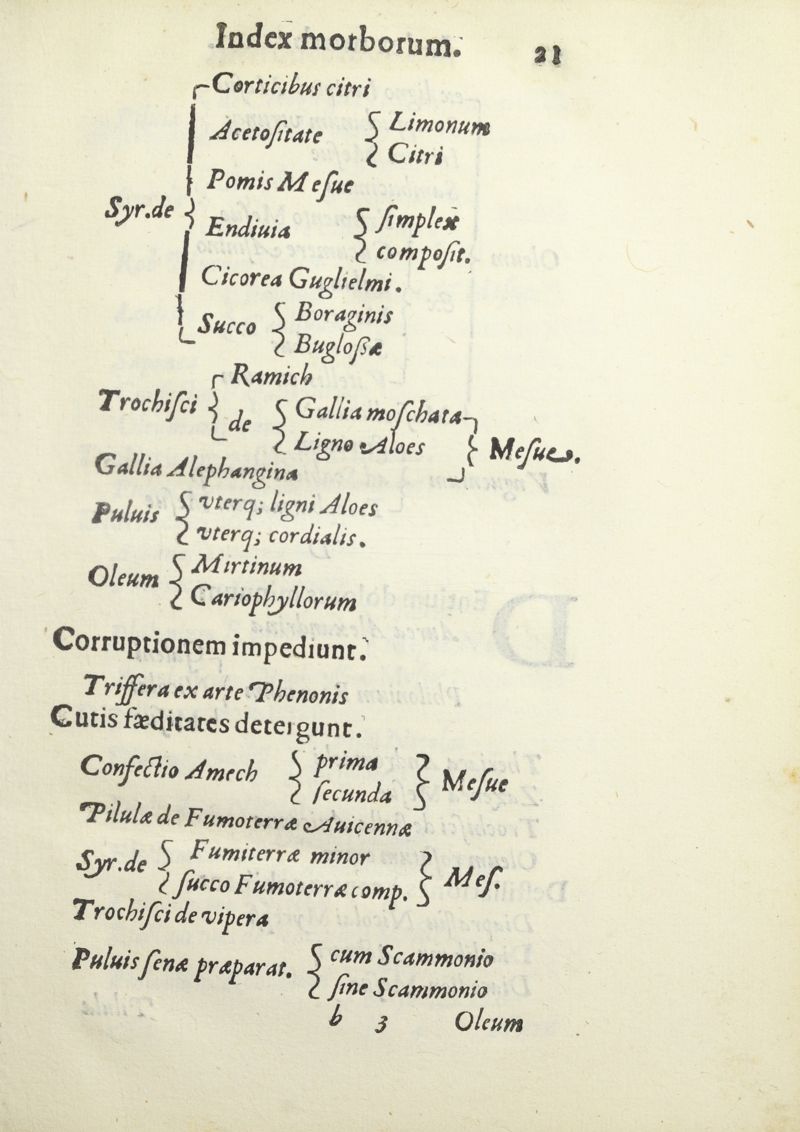 Index morborum. 21
Corticibus citri
Acetoſitate { Limonum
Citri
Pomis Meſue
Syr.de { Endiuia { ſimplex
compoſit.
Cicorea Guglielmi.
Succo { Boraginis
Bugloßæ
Ramich
Trochiſci { de { Gallia moſchata
Ligno Aloes } Meſue.
Gallia Alephangina
Puluis { vterq; ligni Aloes
vterq; cordialis.
Oleum { Mirtinum
Cariophyllorum
Corruptionem impediunt.
Triffera ex arte Phenonis
Cutis fæditates detergunt.
Confectio Amech { prima } Meſue
ſecunda
Pilulæ de Fumoterræ Auicennæ
Syr.de { Fumiterræ minor } Meſ.
ſucco Fumoterræ comp.
Trochiſci de vipera
Puluis ſenæ præparat. { cum Scammonio
ſine Scammonio
b 3 Oleum